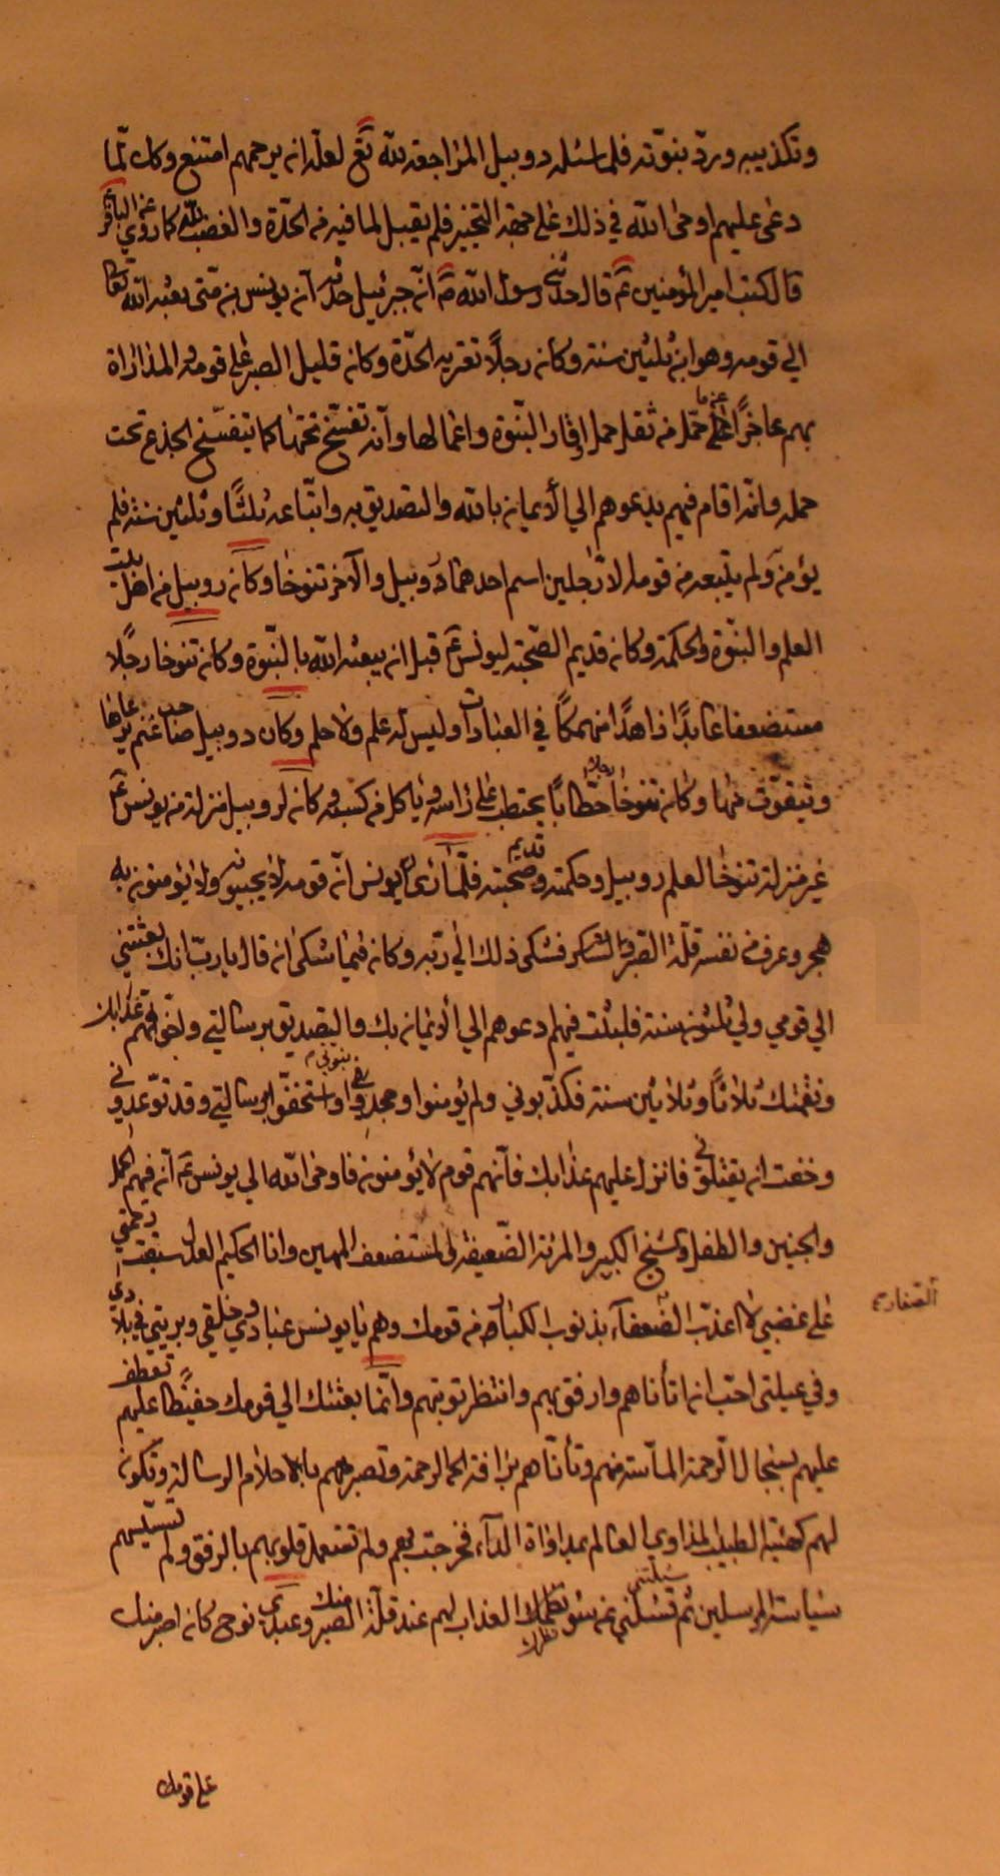 وتكذيبه وردّ بنوّته فلما سئله روبيل المراجعة لله تع لعلّه انه يرحمهم امتنع وكان لمّا
دعى عليهم اوحى الله في ذلك على جهة التخيير فلم يقبل لما فيه من الحدّة والغضب لله كما روي عن الباقر
قال كتب امير المؤمنين عم قال حدثني رسول الله ص انّ جبرئيل حدّثه انّ يونس بن متى بعثه الله تعالى
الي قومه وهو ابن ثلثين سنة وكان رجلاً تعتريه الحدّة وكان قليل الصبر على قومه والمداراة
بهم عاجزاً عما حمل من ثقل حمل اوقار النبّوة واعمالها وانه تفسّخ تحتها كما يتفسّخ الجذع تحت
حمله وانه اقام فيهم يدعوهم الي الأيمان بالله والتصديق به واتباعه ثلثًا وثلثين سنة فلم
يؤمن ولم يتبعه من قومه الا رجلين اسم احدهما روبيل والآخر تنوخا وكان روبيل من اهل بيت
العلم والنبّوة والحكمة وكان قديم الصّحبة ليونس عم قبل ان يبعثه الله بالنبّوة وكان تنوخا رجلا
مستضعفا عابدًا زاهدًا منهمكًا في العبادات وليس له علم ولا حلم وكان روبيل صاحب غنم يرعاها
ويتقوّت منها وكان تنوخا رجلا حطّابًا يحتطب على رأسه ويأكل من كسبه وكان لروبيل منزلة من يونس عم
غير منزلة تنوخا لعلم روبيل وحكمته وقديم صحبته فلمّا رأى يونس انّ قومه لا يجيبونه ولا يؤمنون به
ضجر وعرف من نفسه قلّة الصبر فشكى ذلك الي ربّه وكان فيما شكى ان قال يا ربّ انك بعثتني
الي قومي ولي ثلثون سنة فلبثت فيهم ادعوهم الي الايمان بك والتصديق برسالتي واخوّفهم عذابك
ونقمتك ثلاثًا وثلاثين سنة فكذّبوني ولم يؤمنوا وجحدوا بنبوتي واستخفّوا برسالتي وقد توّعدوني
وخفت ان يقتلوني فانزل عليهم عذابك فانّهم قوم لا يؤمنون فاوحى الله الي يونس عم انّ فيهم الحمل
والجنين والطفل والشيخ الكبير والمرئة الضّعيفة والمستضعف المهين وانا الحكيم العدل سبقت رحمتي
على غضبي لا اعذّب الضعفاء بذنوب الكبار من قومك وهم يا يونس عبادي وخلقي وبريتي في بلادي
الصغار
وفي عيلتي احبّ ان اتأناهم وارفق بهم وانتظر توبتهم وانّما بعثتك الي قومك حفيظا عليهم تعطف
عليهم بسجال الرّحمة الماسّة منهم وتأنّاهم برافة الرحمة وتصبر معهم باحلام الرسالة وتكون
لهم كهيئة الطبيب المداوي العالم بمداواة الداء فخرجت بهم ولم تستعمل قلوبهم بالرفق ولم تسسهم
سياسة المرسلين ثم تسئلني سئلتني عن سوء نظرك العذاب لهم عند قلّة الصبر منك وعبدي نوح كان اصبر منك
على قومك